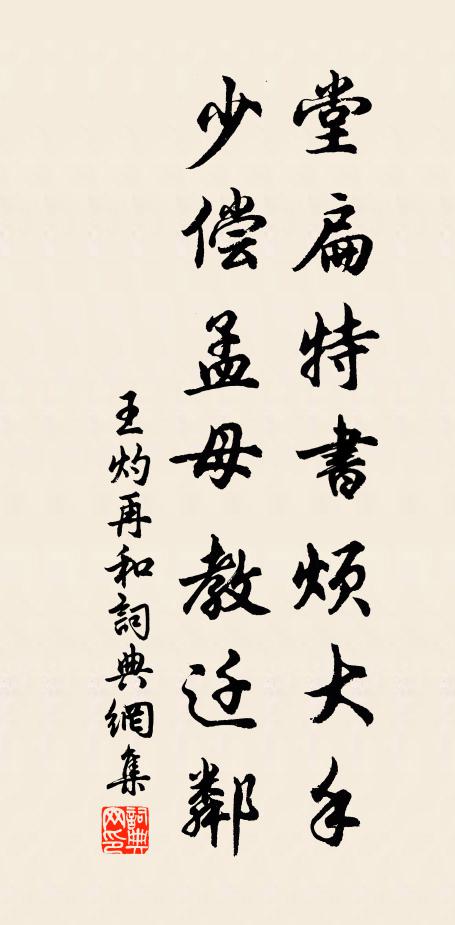 堂扁特書煩大手
少偿孟母教迁鄰
王灼再和詞典網集
詞典网印